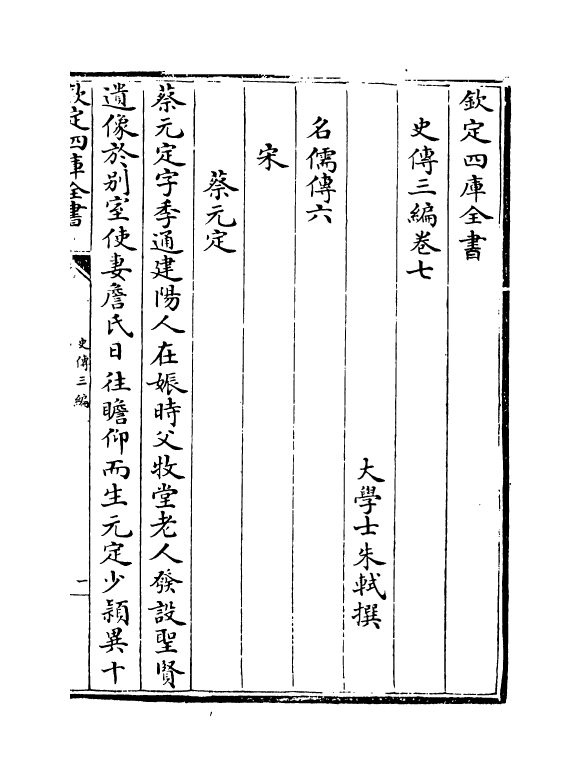 欽定四庫全書
史傳三編卷七
大學士朱軾撰
名儒傳六
宋
蔡元定
蔡元定字季通建陽人在娠時父牧堂老人發設聖賢
遺像於别室使妻詹氏日往瞻仰而生元定少穎異十
欽定四庫全書
史傳三編
一